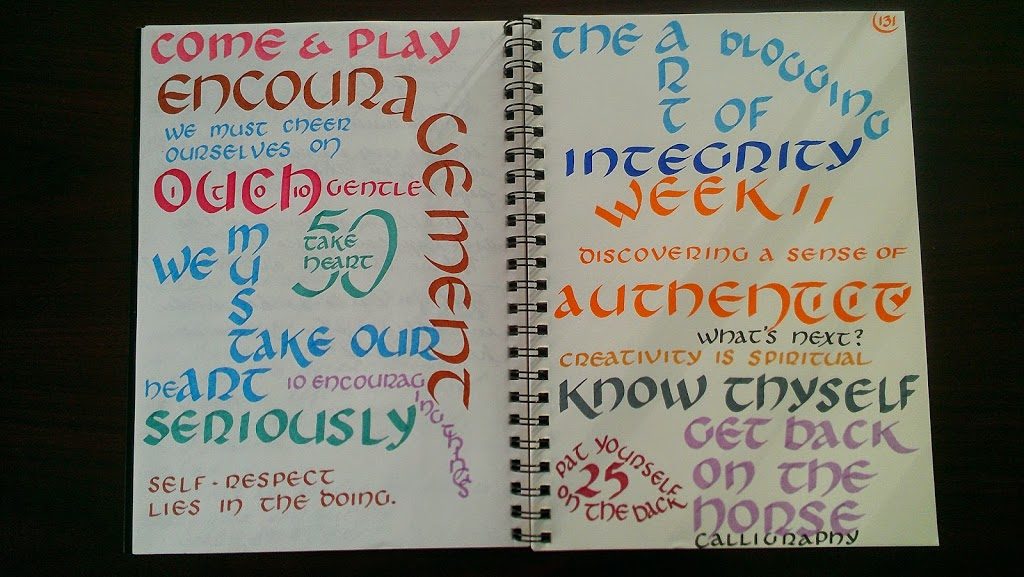 COME & PLAY
ENCOURAGEMENT
WE MUST CHEER
OURSELVES ON
OUCH GENTLE
1 TO 10
WE MUST
50
TAKE
HEART
TAKE OUR
HEART 10 ENCOURAGING THINGS
SERIOUSLY
SELF-RESPECT
LIES IN THE DOING.
131
THE ART OF BLOGGING
INTEGRITY
WEEK 11
DISCOVERING A SENSE OF
AUTHENTICITY
WHAT'S NEXT?
CREATIVITY IS SPIRITUAL
KNOW THYSELF
GET BACK
ON THE
HORSE
PAT YOURSELF
25
ON THE BACK
CALLIGRAPHY